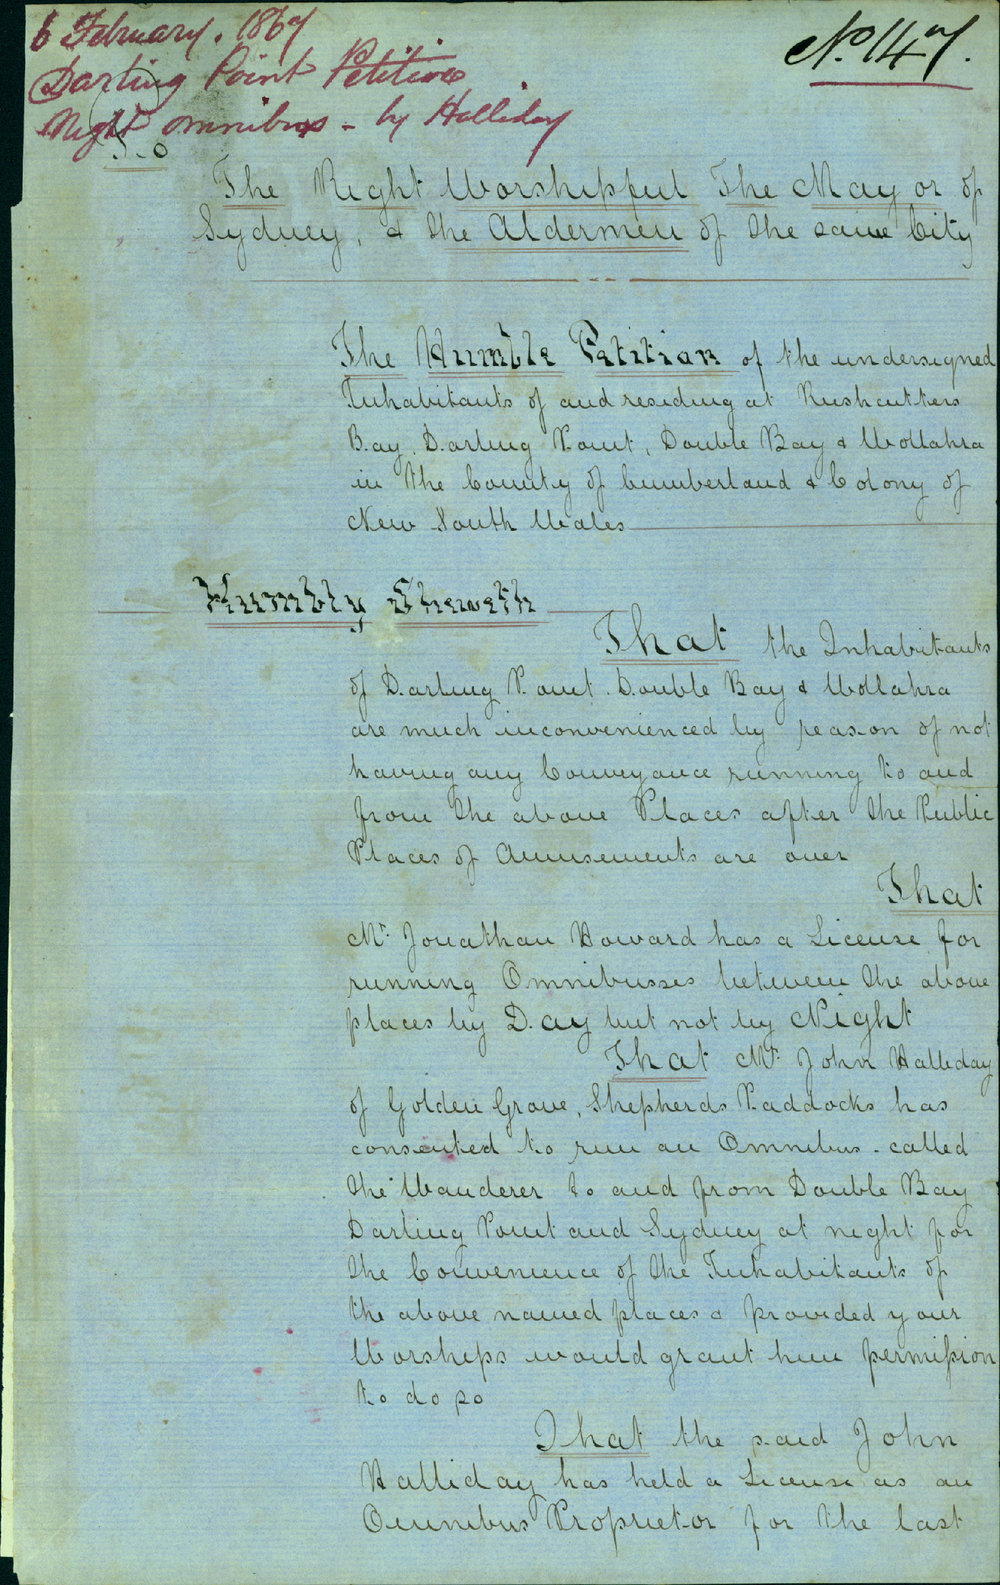 6 February. 1867
No. 147.
Darling Point Petition
Night omnibus - by Halliday
To
The Right Worshipful The Mayor of
Sydney, & the Aldermen of the same City
The Humble Petition of the undersigned
Inhabitants of and residing at Rushcutters
Bay, Darling Point, Double Bay & Wollahra
in the County of Cumberland & Colony of
New South Wales
Humbly Sheweth
That the Inhabitants
of Darling Point. Double Bay & Wollahra
are much inconvenienced by reason of not
having any Conveyance running to and
from the above Places after the Public
Places of Amusements are over
That
Mr. Jonathan Howard has a License for
running Omnibusses between the above
places by Day but not by Night
That Mr. John Halliday
of Golden Grove, Shepherds Paddocks has
consented to run an Omnibus. called
the "Wanderer to and from Double Bay
Darling Point and Sydney at night for
the Convenience of the Inhabitants of
the above named places & provided your
Worships would grant him permission
to do so
That the said John
Halliday has held a License as an
Omnibus Proprietor for the last